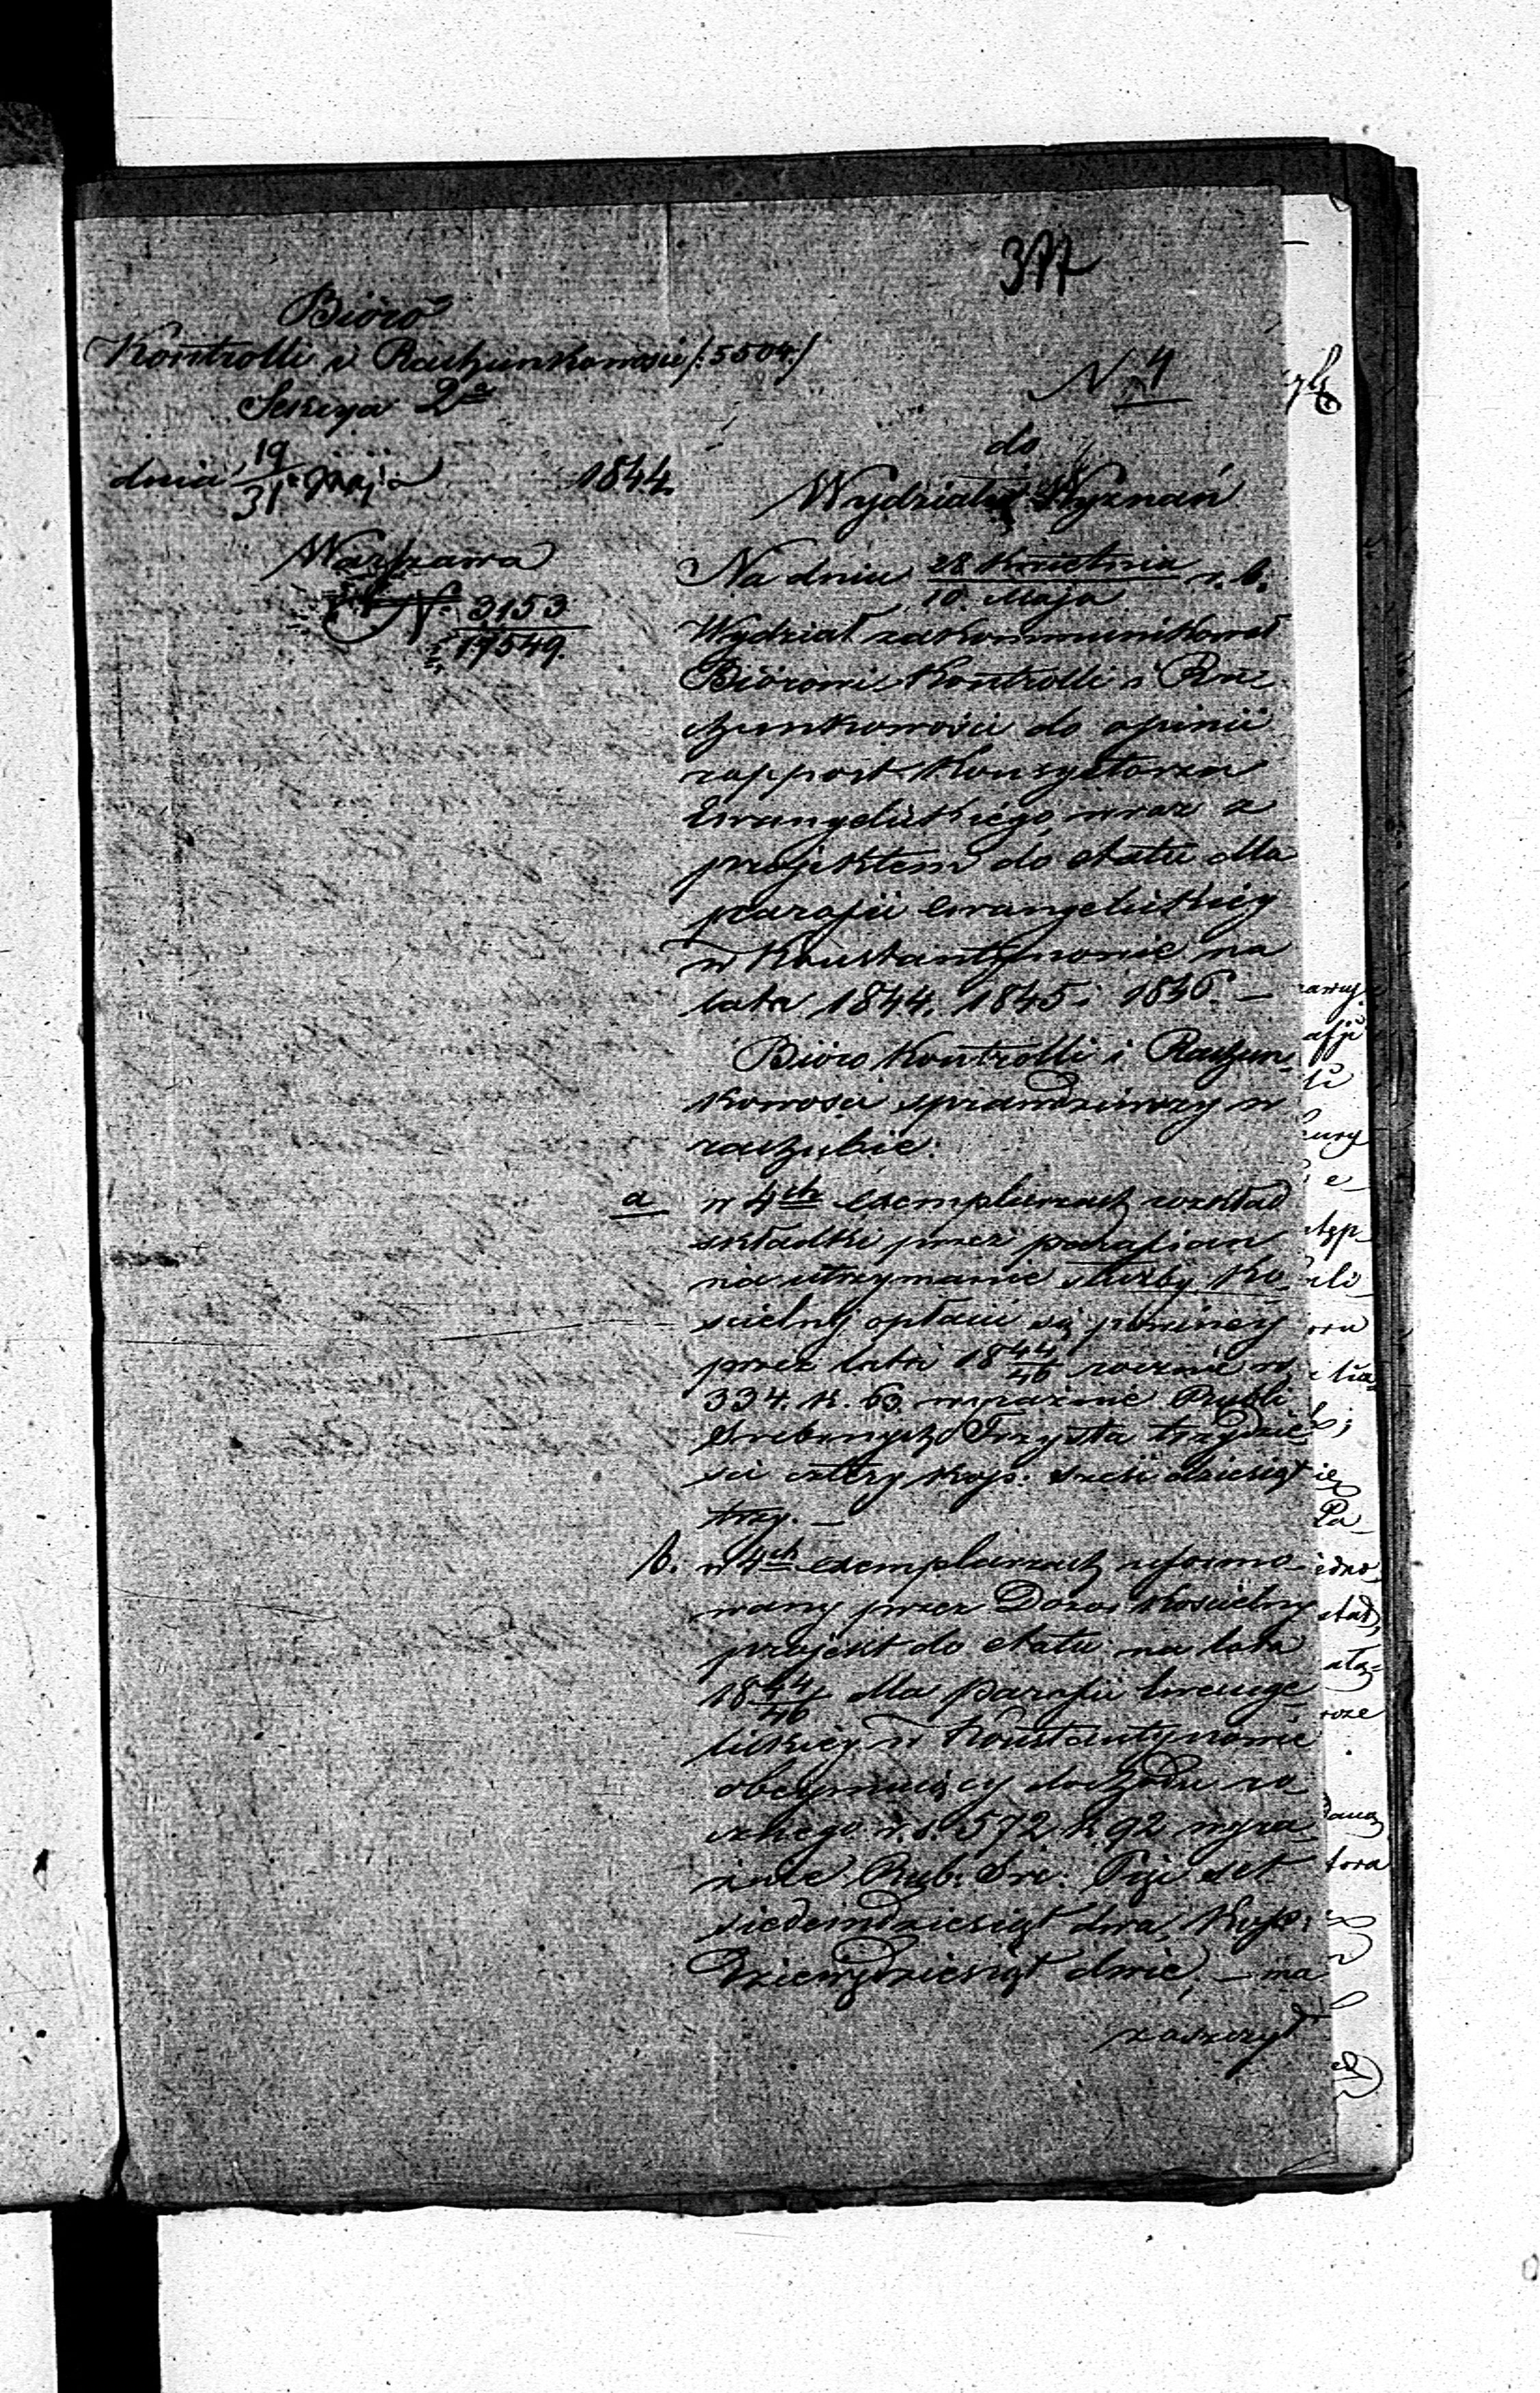 377
Bióro
Kontrolli i Rachunkowości /:5504:/
Sekcya 2a
dnia 19/31 Maja 1844.
Warszawa
N. 3153
17549.
N 4
do
Wydziału Wyznań
Na dniu 28 Kwietnia / 10 Maja r. b.
Wydział zakommunikował
Biórowi Kontrolli i Ra-
chunkowości do opinii
rapport Konsystorza
Ewangelickiego wraz z
projektem do etatu dla
parafii ewangelickiey
w Konstantynowie na
lata 1844. 1845 i 1846. —
Bióro Kontrolli i Rachun-
kowości sprawdziwszy w
rachubie:
a w 4ch exemplarzach rozkład
składki przez parafian
na utrzymanie służby Ko-
ścielnej opłacać się powinney
przez lata 1844/46 rocznie rs
334. k. 63. wyraźnie Rubli
Srebrnych Trzysta trzydzie-
ści cztery kop: sześćdziesiąt
trzy. —
b. w 4ch exemplarzach reformo-
wany przez Dozór Kościelny
projekt do etatu na lata
1844/46 dla parafii Ewange-
lickiey w Konstantynowie
obeymujący dochodu ro-
cznego r. s. 572 k. 92 wyra-
źnie Rub. Sre. Pięćset
siedemdziesiąt dwa, Kop:
Dziewięćdziesiąt dwie, — ma
zaszczyt